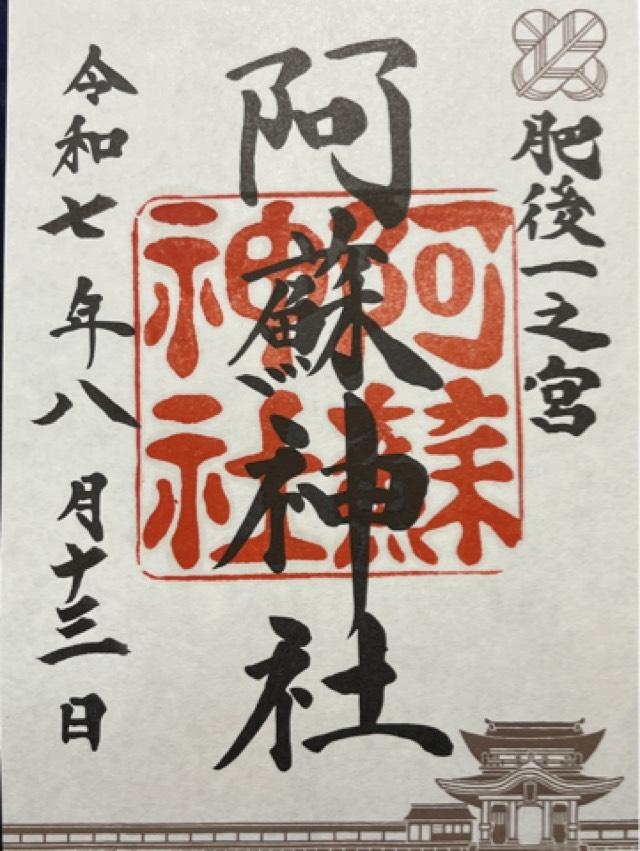 肥後一之宮
阿蘇神社
阿蘇
神社
令和七年八月十三日